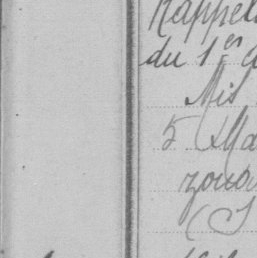 Rappel
du 1er
Mis
5 Ma
zoua
(S